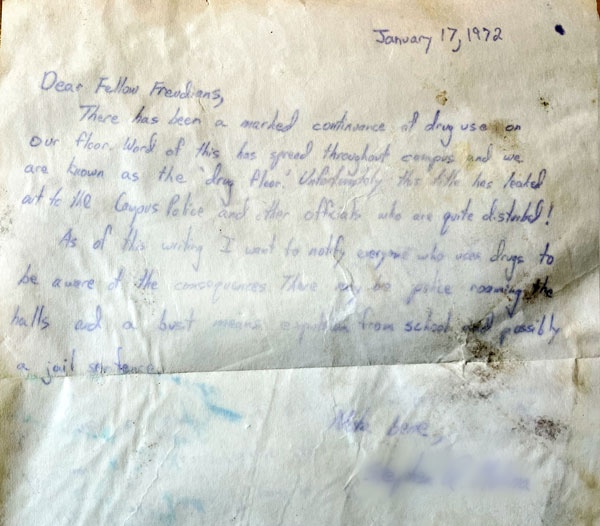 January 17, 1972
Dear Fellow Freudians,
There has been a marked continuance of drug use on
our floor. Word of this has spread throughout campus and we
are known as the "drug floor." Unfortunately this title has leaked
out to the Campus Police and other officials who are quite disturbed!
As of this writing I want to notify everyone who uses drugs to
be aware of the consequences. There may be police roaming the
halls and a bust means expulsion from school and possibly
a jail sentence
Nota bene,